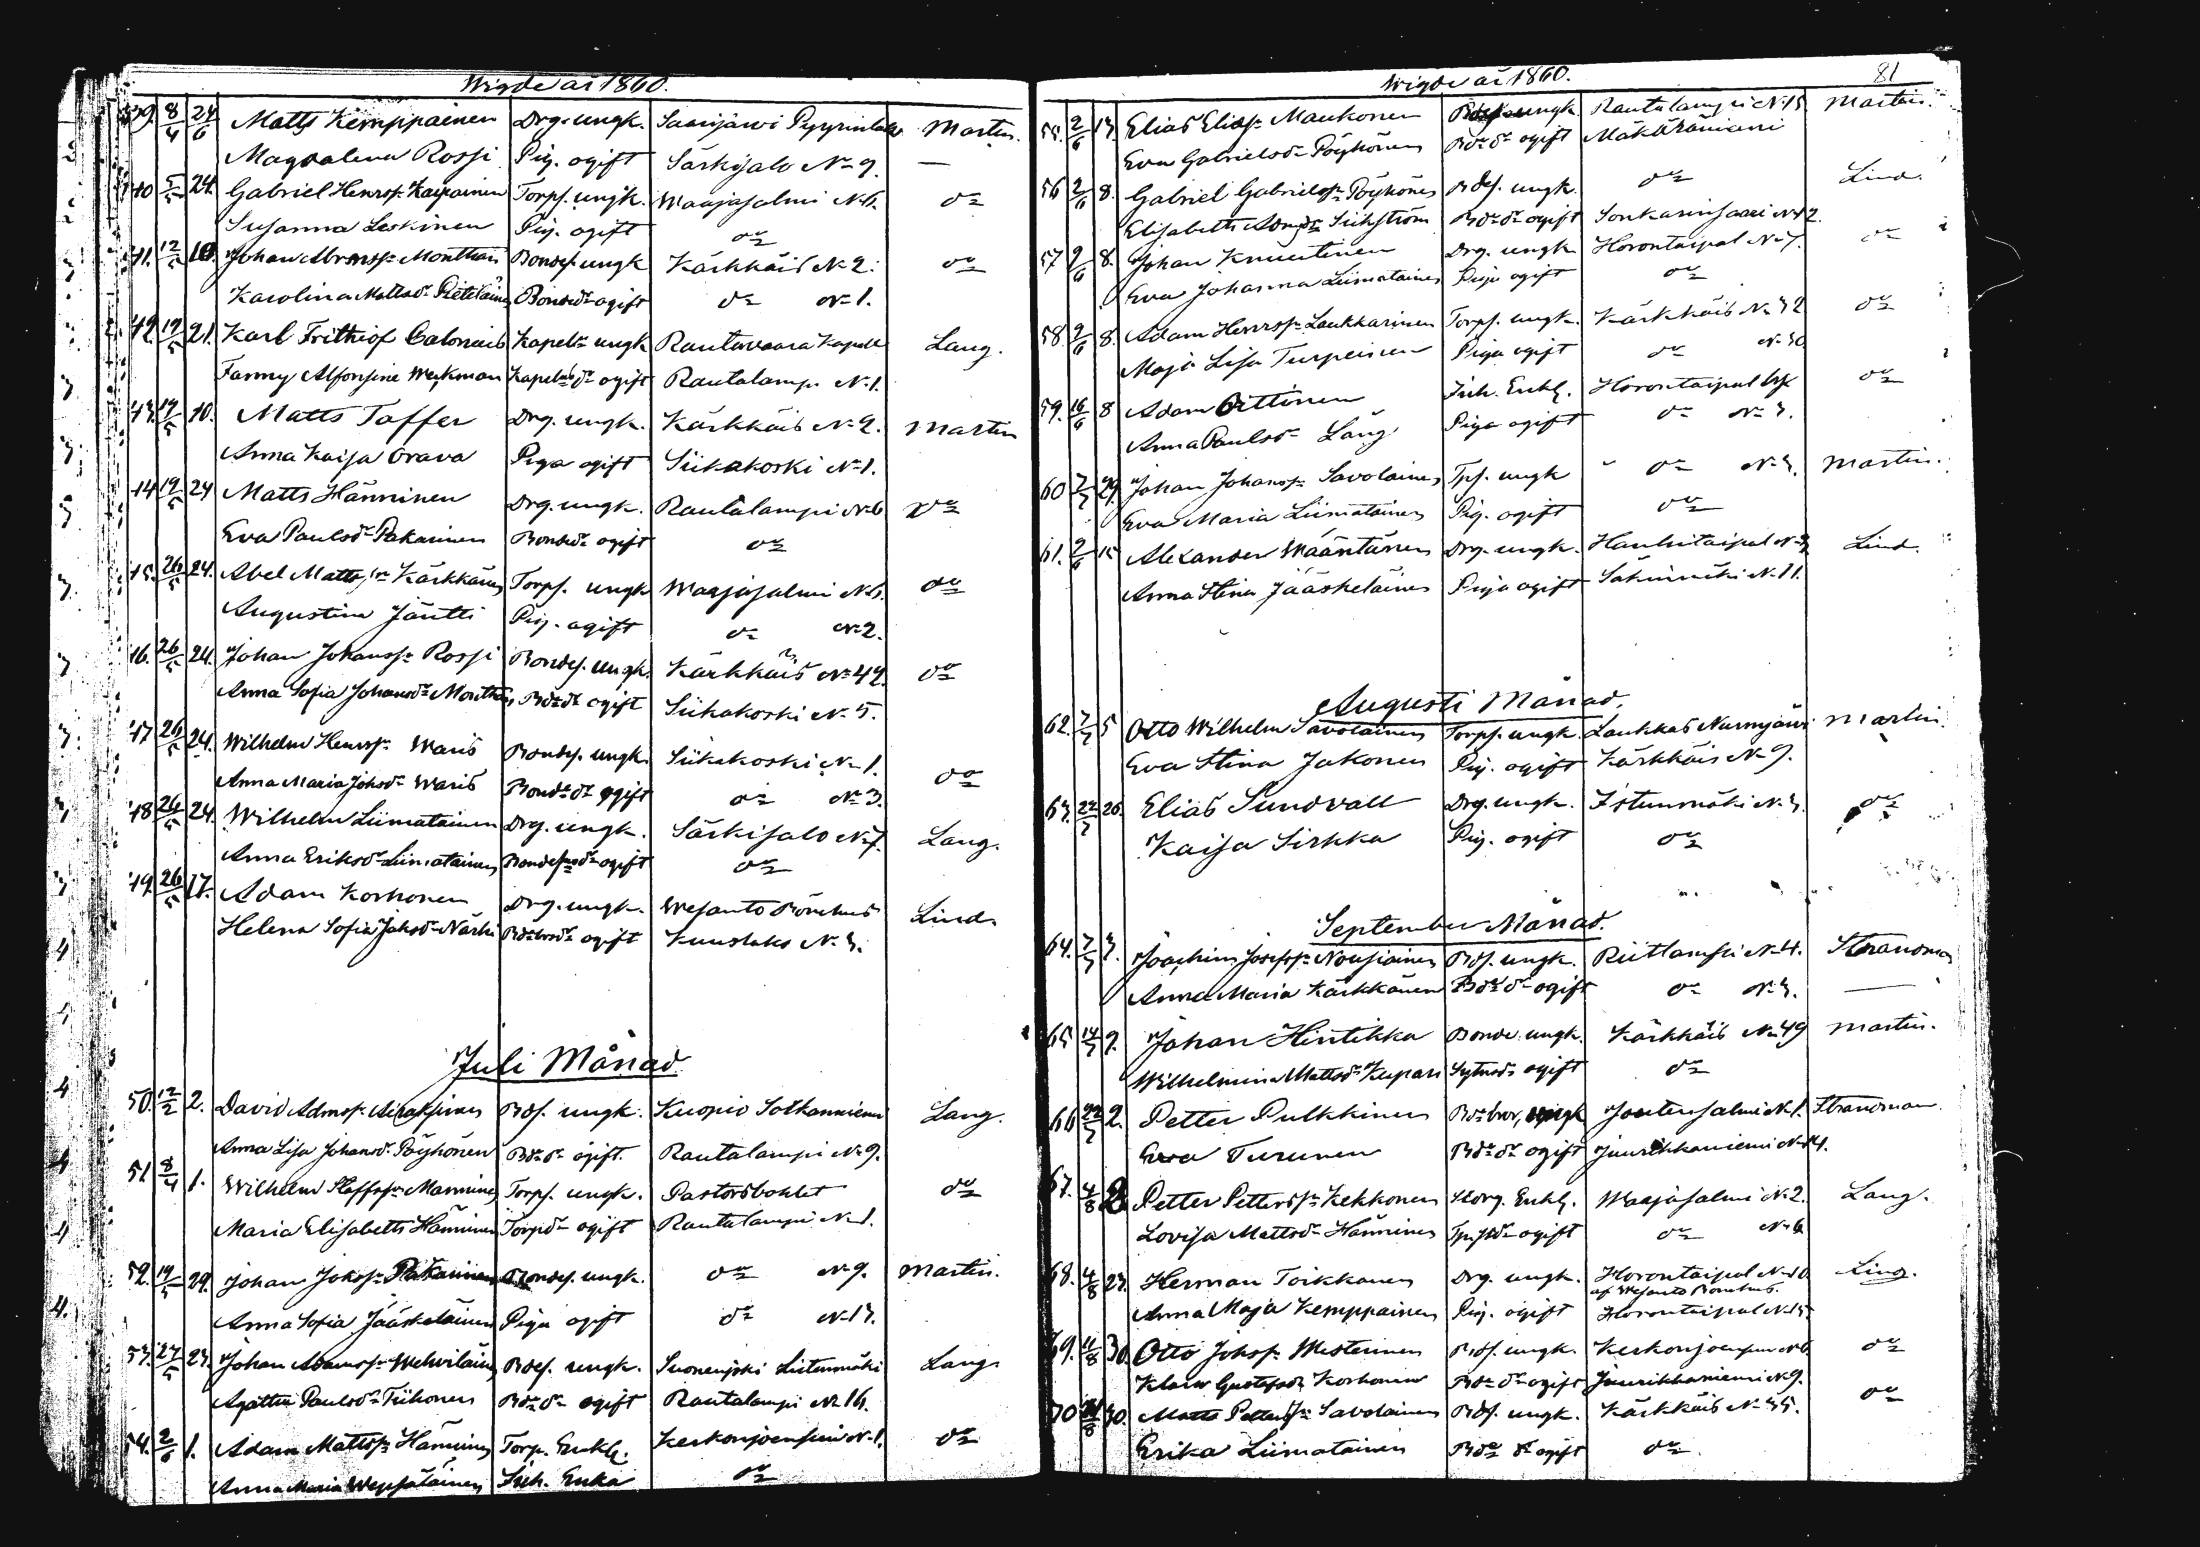 Wigde år 1860.
39. 8/4 24/6 Matts Kemppainen Drg. ungk. Saarijärvi Pyyrinlaks Martin.
Magdalena Rossi Pig. ogift Särkisalo N:o 9. —
40 5/5 24. Gabriel Henrss:n Kaipainen Torps. ungk. Waajasalmi N:o 6. d:o
Susanna Leskinen Pig. ogift d:o
41. 12/5 10. Johan Abrmss:n Monthan Bondes. ungk Kärkkäis N:o 2. d:o
Karolina Mattsd:r Pietiläinen Bonded:r ogift d:o N:o 1.
42. 19/5 21. Karl Frithiof Calonius Kapel:n ungk Rautavaara Kapell Lang.
Fanny Alfonsine Weckman Kapel:ns d:r ogift Rautalampi N:o 1.
43. 19/5 10. Matts Toffer Drg. ungk. Kärkkäis N:o 2. Martin
Anna Kaisa Orava Piga ogift Siikakoski N:o 1.
44 19/5 24 Matts Hänninen Drg. ungk. Rautalampi N:o 6 d:o
Eva Paulsd:r Pakarinen Bonded:r ogift d:o
45. 26/5 24. Abel Mattss:n Kärkkäinen Torps. ungk Waajasalmi N:o 6. d:o
Augustina Jäntti Pig. ogift d:o N:o 2.
46. 26/5 24. Johan Johanss:n Rossi Bondes. ungk. Kärkkäis N:o 42. d:o
Anna Sofia Johansd:r Monthan Bd:e d:r ogift Siikakoski N:o 5.
47 26/5 24. Wilhelm Henrss:n Waris Bondes. ungk. Siikakoski N:o 1. d:o
Anna Maria Johsd:r Waris Bond:e d:r ogift d:o N:o 3.
48 26/5 24. Wilhelm Liimatainen Drg. ungk. Särkisalo N:o 7. Lang.
Anna Eriksd:r Liimatainen Bondes:ns d:r ogift d:o
49. 26/5 17. Adam Korhonen Drg. ungk. Wesanto Bönehus Lind.
Helena Sofia Johsd:r Närhi ogift Kuuslaks N:o 3.
Juli Månad
50. 12/2 2. David Admss:n Airaksinen Bds. ungk. Kuopio Lang.
Anna Lisa Johansd:r Pöyhönen Bd:e d:r ogift. Rautalampi N:o 9.
51 8/4 1. Wilhelm Staffss:n Manninen Torps. ungk. Pastorsbohlet d:o
Maria Elisabeth Hänninen Torpd:r ogift Rautalampi N:o 1.
52. 19/5 29. Johan Johss:n Pakarinen Bondes. ungk. d:o N:o 9. Martin.
Anna Sofia Jääskeläinen Piga ogift d:o N:o 13.
53. 27/5 23. Johan Adamss:n Wehviläinen Bdes. ungk. Suonenjoki Liitunmäki Lang.
Agatha Paulsd:r Tiihonen Bd:e d:r ogift Rautalampi N:o 16.
54. 2/6 1. Adam Mattss:n Hänninen Torp. Enkl. Kerkonjoensuu N:o 1. d:o
Anna Maria Wepsäläinen Inh. Enka d:o
Wigde år 1860. 81
55. 2/6 17. Elias Eliss:n Maukonen ungk. Rautalampi N:o 15 Martin.
Eva Gabrielsd:r Pöyhönen Bd:e d:r ogift
56 2/6 8. Gabriel Gabrielss:n Pöyhönen Bdes. ungk. d:o Lind.
Elisabeth Siikström Bd:e d:r ogift Sonkarinsaari N:o 12.
57 2/6 8. Johan Knuutinen Drg. ungk Horontaipal N:o 7. d:o
Eva Johanna Liimatainen Piga ogift d:o
58. 2/6 8. Adam Henrss:n Laukkarinen Torps. ungk. Kärkkäis N:o 32 d:o
Maja Lisa Turpeinen Piga ogift d:o N:o 30
59. 16/6 8 Adam Oittinen Inh. Enkl. Horontaipal d:o
Anna Paulsd:r Lång Piga ogift d:o N:o 3.
60 29. Johan Johanss:n Savolainen Tps. ungk d:o N:o 3. Martin.
Eva Maria Liimatainen Pig. ogift d:o
61. 2/6 15 Alexander Määntänen Drg. ungk. Hankitaipal Lind.
Anna Stina Jääskeläinen Piga ogift N:o 11.
Augusti Månad.
62. 7/7 5 Otto Wilhelm Savolainen Torps. ungk. Laukkas Martin
Eva Stina Jakonen Pig. ogift Kärkkäis N:o 9.
63. 22/7 26. Elias Sundvall Drg. ungk. Istunmäki N:o 3. d:o
Kaisa Sirkka Pig. ogift d:o
September Månad.
64. 7/7 7. Joachim Josefss:n Nousiainen Bds. ungk. Riitlampi N:o 4. Strandman
Anna Maria Kärkkäinen Bd:e d:r ogift d:o N:o 3. —
65 14/7 9. Johan Hintikka Bonde ungk. Kärkkäis N:o 49 Martin.
Wilhelmina Mattsd:r Kupari Sytnsd:r ogift d:o
66 22/7 2. Petter Pulkkinen Bd:e bror, ungk Joutensalmi N:o 1. Strandman
Eva Turunen Bd:e d:r ogift Juurikkaniemi N:o 14.
67. 4/8 2 Petter Petterss:n Kekkonen Enkl. Waajasalmi N:o 2. Lang.
Lovisa Mattsd:r Hänninen ogift d:o N:o 6
68. 4/8 23. Herman Toikkanen Drg. ungk. Horontaipal N:o 10. Lind.
af Wesanto Bönehus.
Anna Maja Kemppainen Pig. ogift Horontaipal N:o 15.
69. 11/8 30. Otto Johss:n Westerinen Bds. ungk. Kerkonjoensuu N:o 6. d:o
Klara Gustafsd:r Korhonen Bd:e d:r ogift Juurikkaniemi N:o 9.
70 30. Matts Petterss:n Savolainen Bds. ungk. Kärkkäis N:o 35. d:o
Erika Liimatainen Bd:e d:r ogift d:o